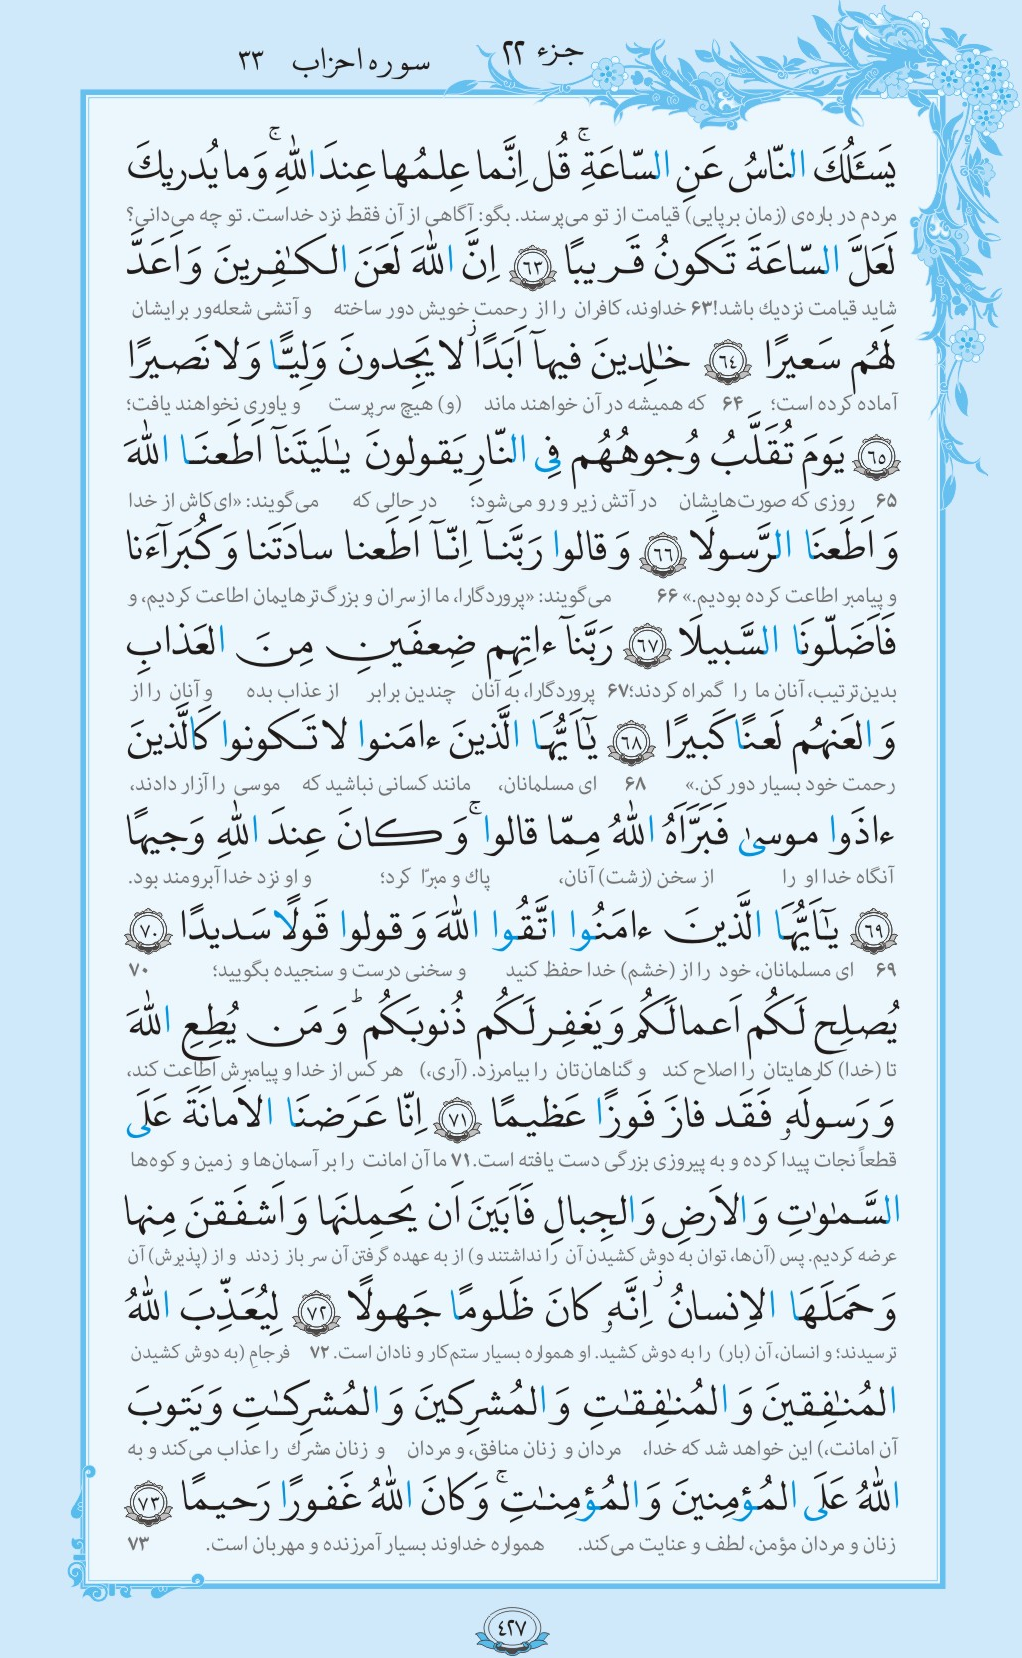 جزء ۲۲
سوره احزاب ۳۳
يَسـَٔلُكَ النّاسُ عَنِ السّاعَةِ ۚ قُل اِنَّما عِلمُها عِندَ اللّٰهِ ۚ وَ ما يُدريكَ
مردم در باره‌ی (زمان برپایی) قیامت از تو می‌پرسند. بگو: آگاهی از آن فقط نزد خداست. تو چه می‌دانی؟
لَعَلَّ السّاعَةَ تَكونُ قَريبًا ﴿٦٣﴾ اِنَّ اللّٰهَ لَعَنَ الكٰفِرينَ وَ اَعَدَّ
شاید قیامت نزدیك باشد! ۶۳ خداوند، کافران را از رحمت خویش دور ساخته و آتشی شعله‌ور برایشان
لَهُم سَعيرًا ﴿٦٤﴾ خٰلِدينَ فيهآ اَبَدًا ۖ لا يَجِدونَ وَلِيًّا وَ لا نَصيرًا
آماده کرده است؛ ۶۴ که همیشه در آن خواهند ماند (و) هیچ سرپرست و یاوری نخواهند یافت؛
﴿٦٥﴾ يَومَ تُقَلَّبُ وُجوهُهُم فِى النّارِ يَقولونَ يٰلَيتَنآ اَطَعنَا اللّٰهَ
۶۵ روزی که صورت‌هایشان در آتش زیر و رو می‌شود؛ در حالی که می‌گویند: «ای‌کاش از خدا
وَ اَطَعنَا الرَّسولَا ﴿٦٦﴾ وَ قالوا رَبَّنآ اِنّآ اَطَعنا سادَتَنا وَ كُبَرآءَنا
و پیامبر اطاعت کرده بودیم.» ۶۶ می‌گویند: «پروردگارا، ما از سران و بزرگ‌ترهایمان اطاعت کردیم، و
فَاَضَلّونَا السَّبيلَا ﴿٦٧﴾ رَبَّنآ ءاتِهِم ضِعفَينِ مِنَ العَذابِ
بدین‌ترتیب، آنان ما را گمراه کردند؛ ۶۷ پروردگارا، به آنان چندین برابر از عذاب بده و آنان را از
وَ العَنهُم لَعنًا كَبيرًا ﴿٦٨﴾ يٰٓاَيُّهَا الَّذينَ ءامَنوا لا تَكونوا كَالَّذينَ
رحمت خود بسیار دور کن.» ۶۸ ای مسلمانان، مانند کسانی نباشید که موسی را آزار دادند،
ءاذَوا موسىٰ فَبَرَّاَهُ اللّٰهُ مِمّا قالوا ۚ وَ كانَ عِندَ اللّٰهِ وَجيهًا
آنگاه خدا او را از سخن (زشت) آنان، پاك و مبرّا کرد؛ و او نزد خدا آبرومند بود.
﴿٦٩﴾ يٰٓاَيُّهَا الَّذينَ ءامَنُوا اتَّقُوا اللّٰهَ وَ قولوا قَولًا سَديدًا ﴿٧٠﴾
۶۹ ای مسلمانان، خود را از (خشم) خدا حفظ کنید و سخنی درست و سنجیده بگویید؛ ۷۰
يُصلِح لَكُم اَعمالَكُم وَ يَغفِر لَكُم ذُنوبَكُم ۗ وَ مَن يُطِعِ اللّٰهَ
تا (خدا) کارهایتان را اصلاح کند و گناهان‌تان را بیامرزد. (آری،) هر کس از خدا و پیامبرش اطاعت کند،
وَ رَسولَهٗ فَقَد فازَ فَوزًا عَظيمًا ﴿٧١﴾ اِنّا عَرَضنَا الاَمانَةَ عَلَى
قطعاً نجات پیدا کرده و به پیروزی بزرگی دست یافته است. ۷۱ ما آن امانت را بر آسمان‌ها و زمین و کوه‌ها
السَّمٰوٰتِ وَ الاَرضِ وَ الجِبالِ فَاَبَينَ اَن يَحمِلنَها وَ اَشفَقنَ مِنها
عرضه کردیم. پس (آن‌ها، توان به دوش کشیدن آن را نداشتند و) از به عهده گرفتن آن سر باز زدند و از (پذیرش) آن
وَ حَمَلَهَا الاِنسانُ ۖ اِنَّهٗ كانَ ظَلومًا جَهولًا ﴿٧٢﴾ لِيُعَذِّبَ اللّٰهُ
ترسیدند؛ و انسان، آن (بار) را به دوش کشید. او همواره بسیار ستم‌کار و نادان است. ۷۲ فرجامِ (به دوش کشیدن
المُنٰفِقينَ وَ المُنٰفِقٰتِ وَ المُشرِكينَ وَ المُشرِكٰتِ وَ يَتوبَ
آن امانت،) این خواهد شد که خدا، مردان و زنان منافق، و مردان و زنان مشرك را عذاب می‌کند و به
اللّٰهُ عَلَى المُؤمِنينَ وَ المُؤمِنٰتِ ۚ وَ كانَ اللّٰهُ غَفورًا رَحيمًا ﴿٧٣﴾
زنان و مردان مؤمن، لطف و عنایت می‌کند. همواره خداوند بسیار آمرزنده و مهربان است. ۷۳
٤٢٧